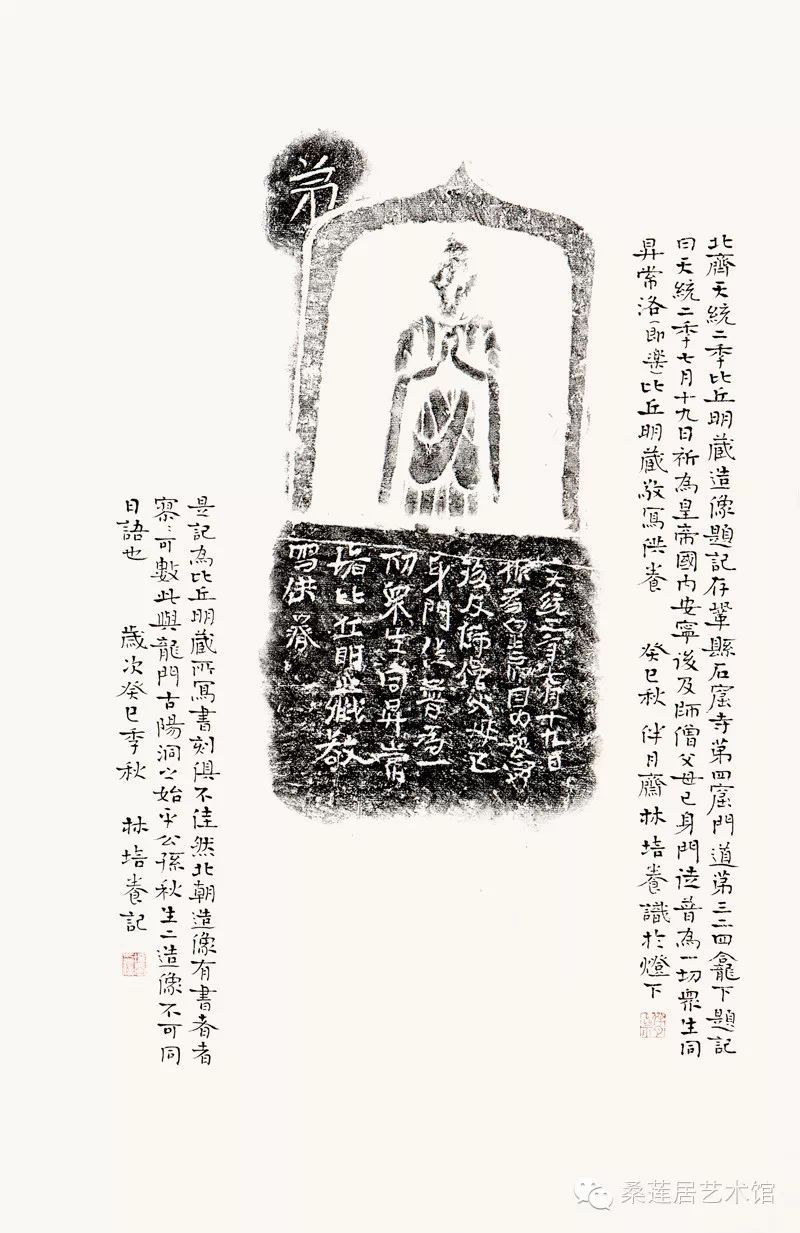 北齊天統二季比丘明藏造像題記存鞏縣石窟寺第四窟門道第三二四龕下題記
曰天統二季七月十九日祈為皇帝國內安寧後及師僧父母已身門徒普為一切眾生同
昇常洛（即樂）比丘明藏敬寫供養 癸巳秋 伴月齋林培養識於燈下
天統二年七月十九日
後及師僧父母已
身門徒普為一
切眾生同昇常
洛比丘明藏敬
寫供養
是記為比丘明藏所寫書刻俱不佳然北朝造像有書者者
寮〻可數此與龍門古陽洞之始平公孫秋生二造像不可同
日語也 歲次癸巳季秋 林培養記
桑莲居艺术馆